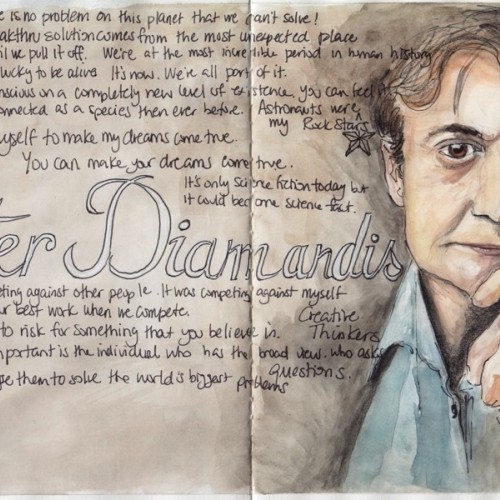 e is no problem on this planet that we can't solve!
akthru solution comes from the most unexpected place
il we pull it off. We're at the most incredible period in human history
lucky to be alive It's now. We're all part of it.
nscious on a completely new level of existence, you can feel it
onnected as a species then ever before. Astronauts were
my Rock Stars
yself to make my dreams come true.
You can make your dreams come true.
It's only science fiction today but
it could become science fact.
ter Diamandis
eting against other people. It was competing against myself
ur best work when we compete.
Creative
to risk for something that you believe in. Thinkers
mportant is the individual who has the broad view. who asks
questions.
pe them to solve the world's biggest problems